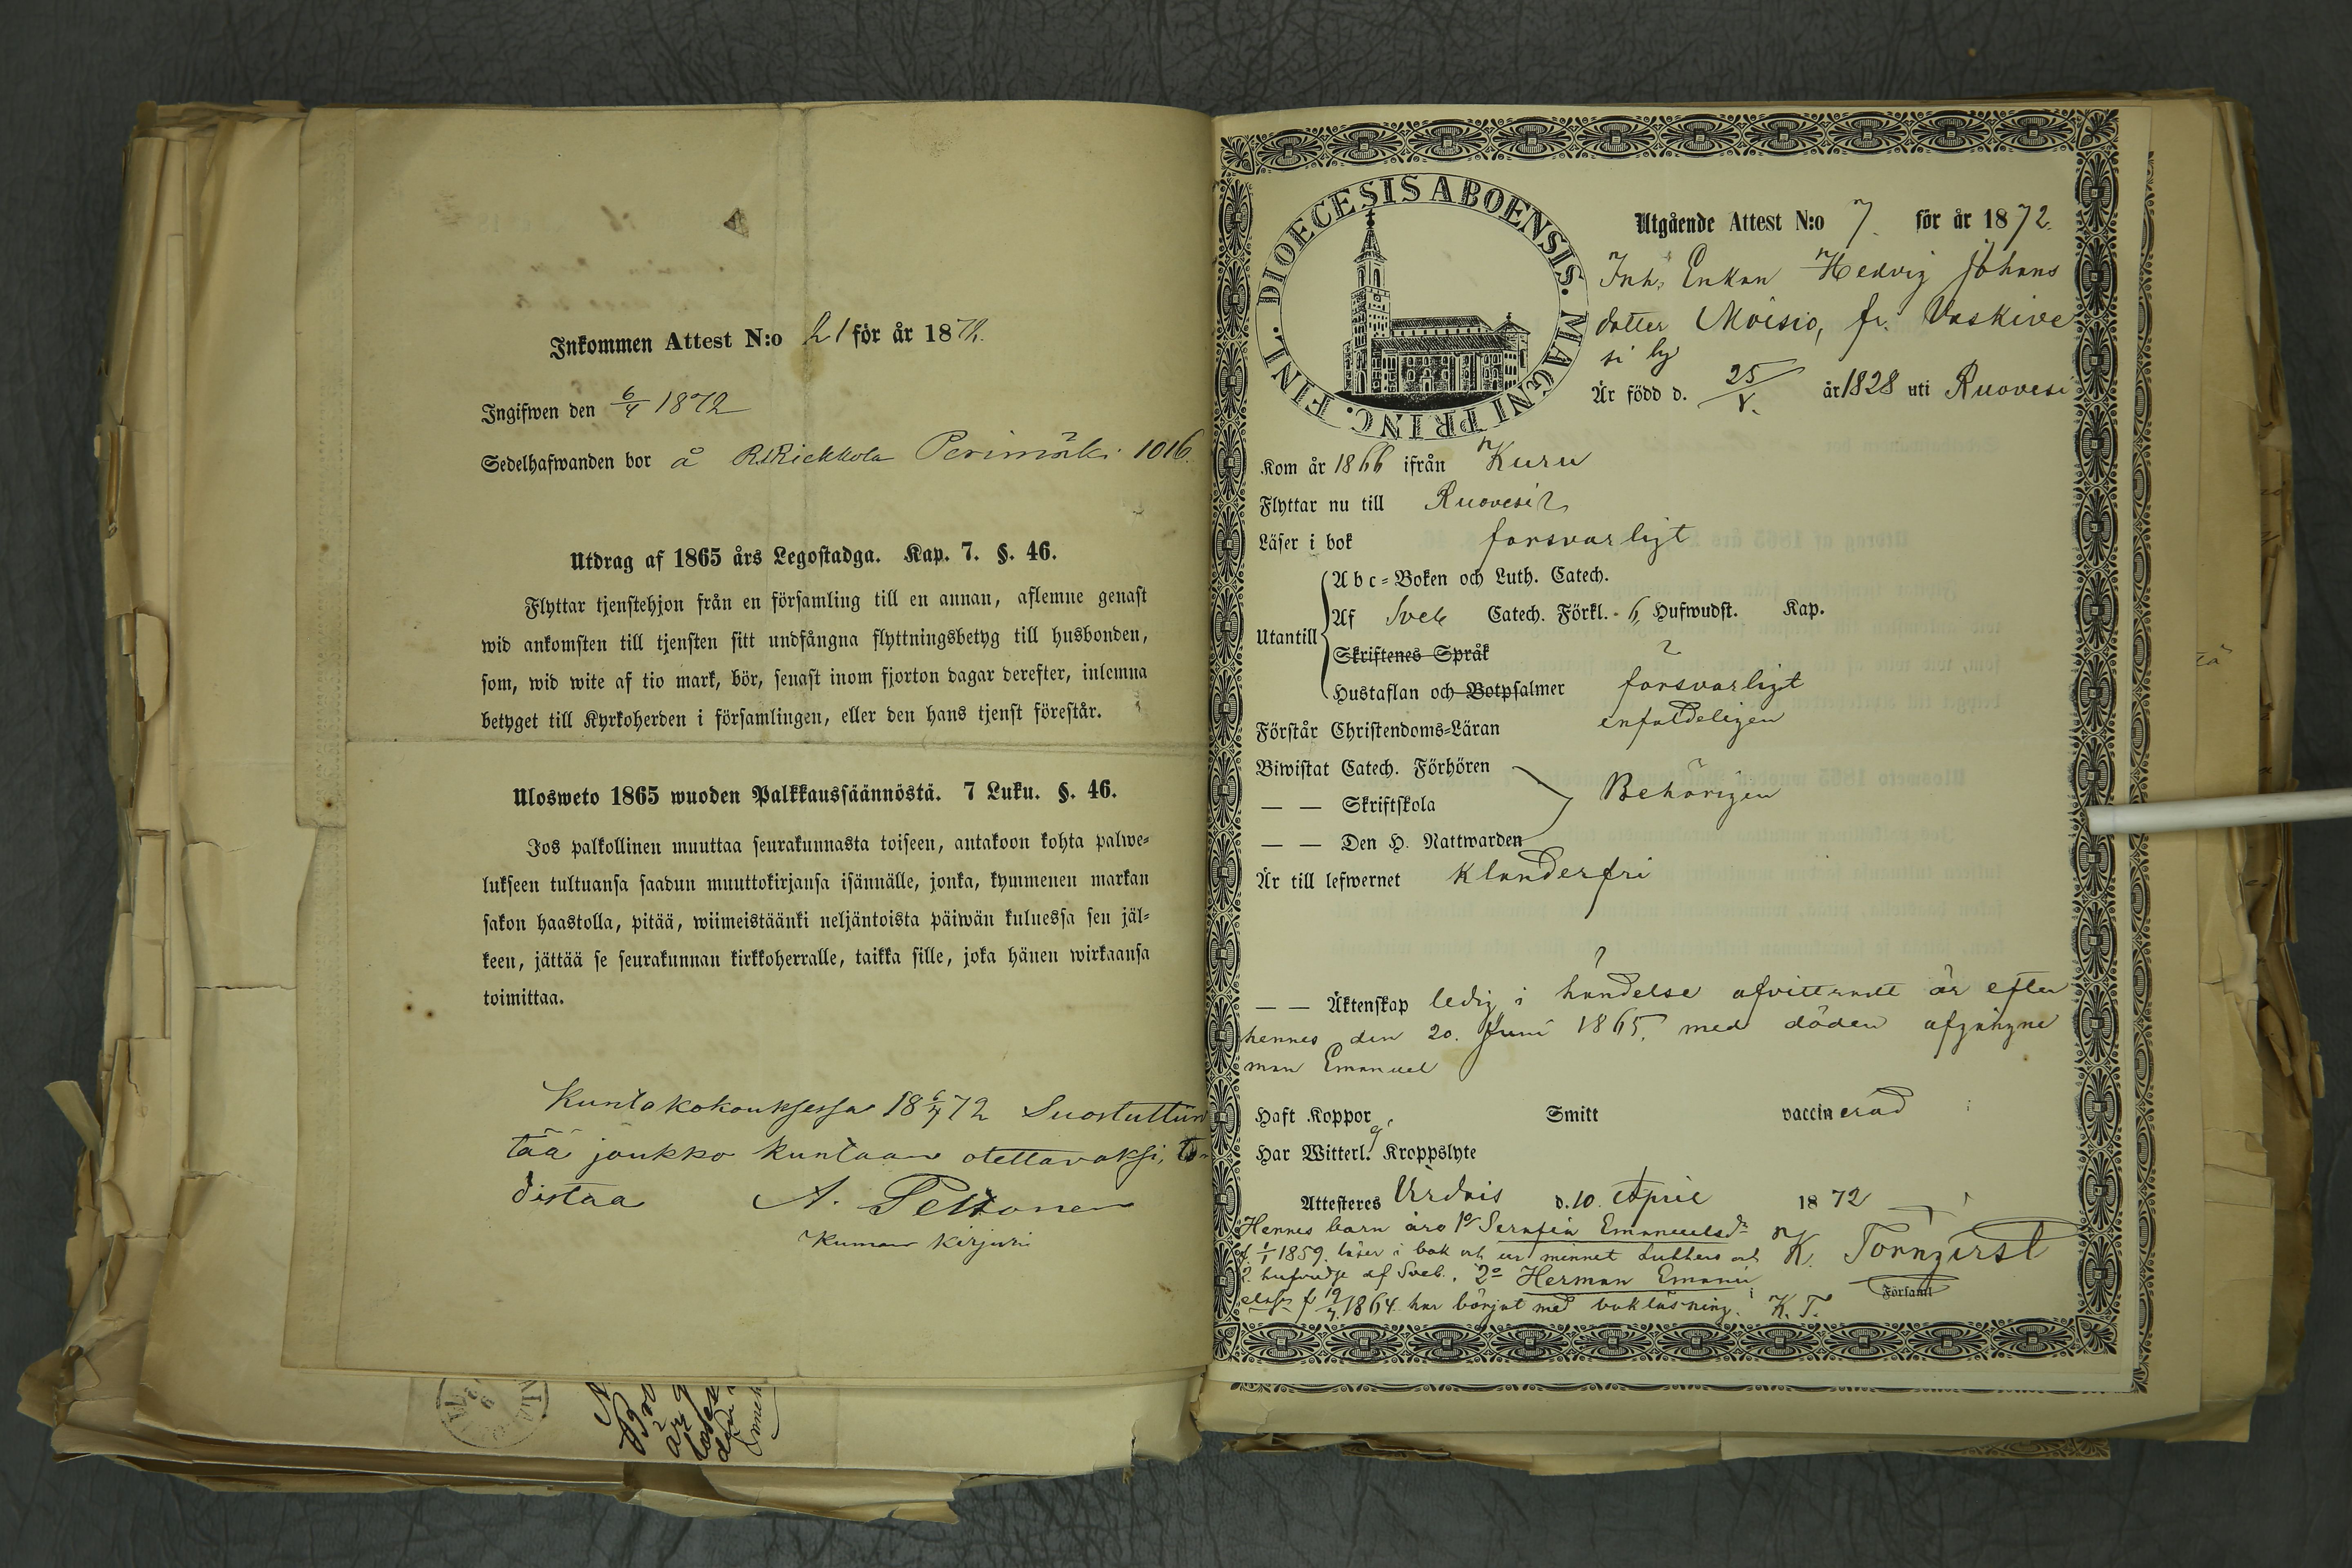 Inkommen Attest N:o 21 för år 1872.
Ingifwen den 6/4 1872
Sedelhafwanden bor å Perimäki 1016.
Utdrag af 1865 års Legostadga. Kap. 7. §. 46.
Flyttar tjenstehjon från en församling till en annan, aflemne genast
wid ankomsten till tjensten sitt undfångna flyttningsbetyg till husbonden,
som, wid wite af tio mark, bör, senast inom fjorton dagar derefter, inlemna
betyget till Kyrkoherden i församlingen, eller den hans tjenst förestår.
Ulosweto 1865 wuoden Palkkaussäännöstä. 7 Luku. §. 46.
Jos palkollinen muuttaa seurakunnasta toiseen, antakoon kohta palwe-
lukseen tultuansa saadun muuttokirjansa isännälle, jonka, kymmenen markan
sakon haastolla, pitää, wiimeistäänki neljäntoista päiwän kuluessa sen jäl-
keen, jättää se seurakunnan kirkkoherralle, taikka sille, joka hänen wirkaansa
toimittaa.
Kuntakokouksessa 18 6/4 72 Suostuttiin
tää joukko kuntaan otettavaksi, to-
distaa A. Peltonen
Kunnan kirjuri
DIOECESIS ABOENSIS. MAGNI PRINC. FINL.
Utgående Attest N:o 7. för år 1872.
Inh. Enkan Hedvig Johans
dotter Moisio, fr. Vaskive
si by
Är född d. 25/V. år 1828 uti Ruovesi
Kom år 1866 ifrån Kuru
Flyttar nu till Ruovesi
Läser i bok forsvarligt
Utantill
Abc-Boken och Luth. Catech.
Af Sveb Catech. Förkl. - 6, Hufwudst. Kap.
Skriftenes Språk
Hustaflan och Botpsalmer forsvarligt
Förstår Christendoms-Läran enfaldeligen
Biwistat Catech. Förhören
— — Skriftskola Behörigen
— — Den H. Nattwarden
Är till lefwernet klanderfri
— — Äktenskap ledig i händelse afvittradt är efter
hennes den 20. Juni 1865. med döden afgångne
man Emanuel
Haft Koppor Smitt vaccinerad
Har Witterl. Kroppslyte
Attesteres Urdais d. 10. April 1872
Hennes barn äro 1o Serafia Emanuelsdr K. Törnqvist
f. 1/1 1859. läser i bok och ur minnet Luthers och
2. hufvudst. af Sveb. 2o Herman Emanu
elsson f 12/7 1864 har börjat med bokläsning. K. T.
Församl